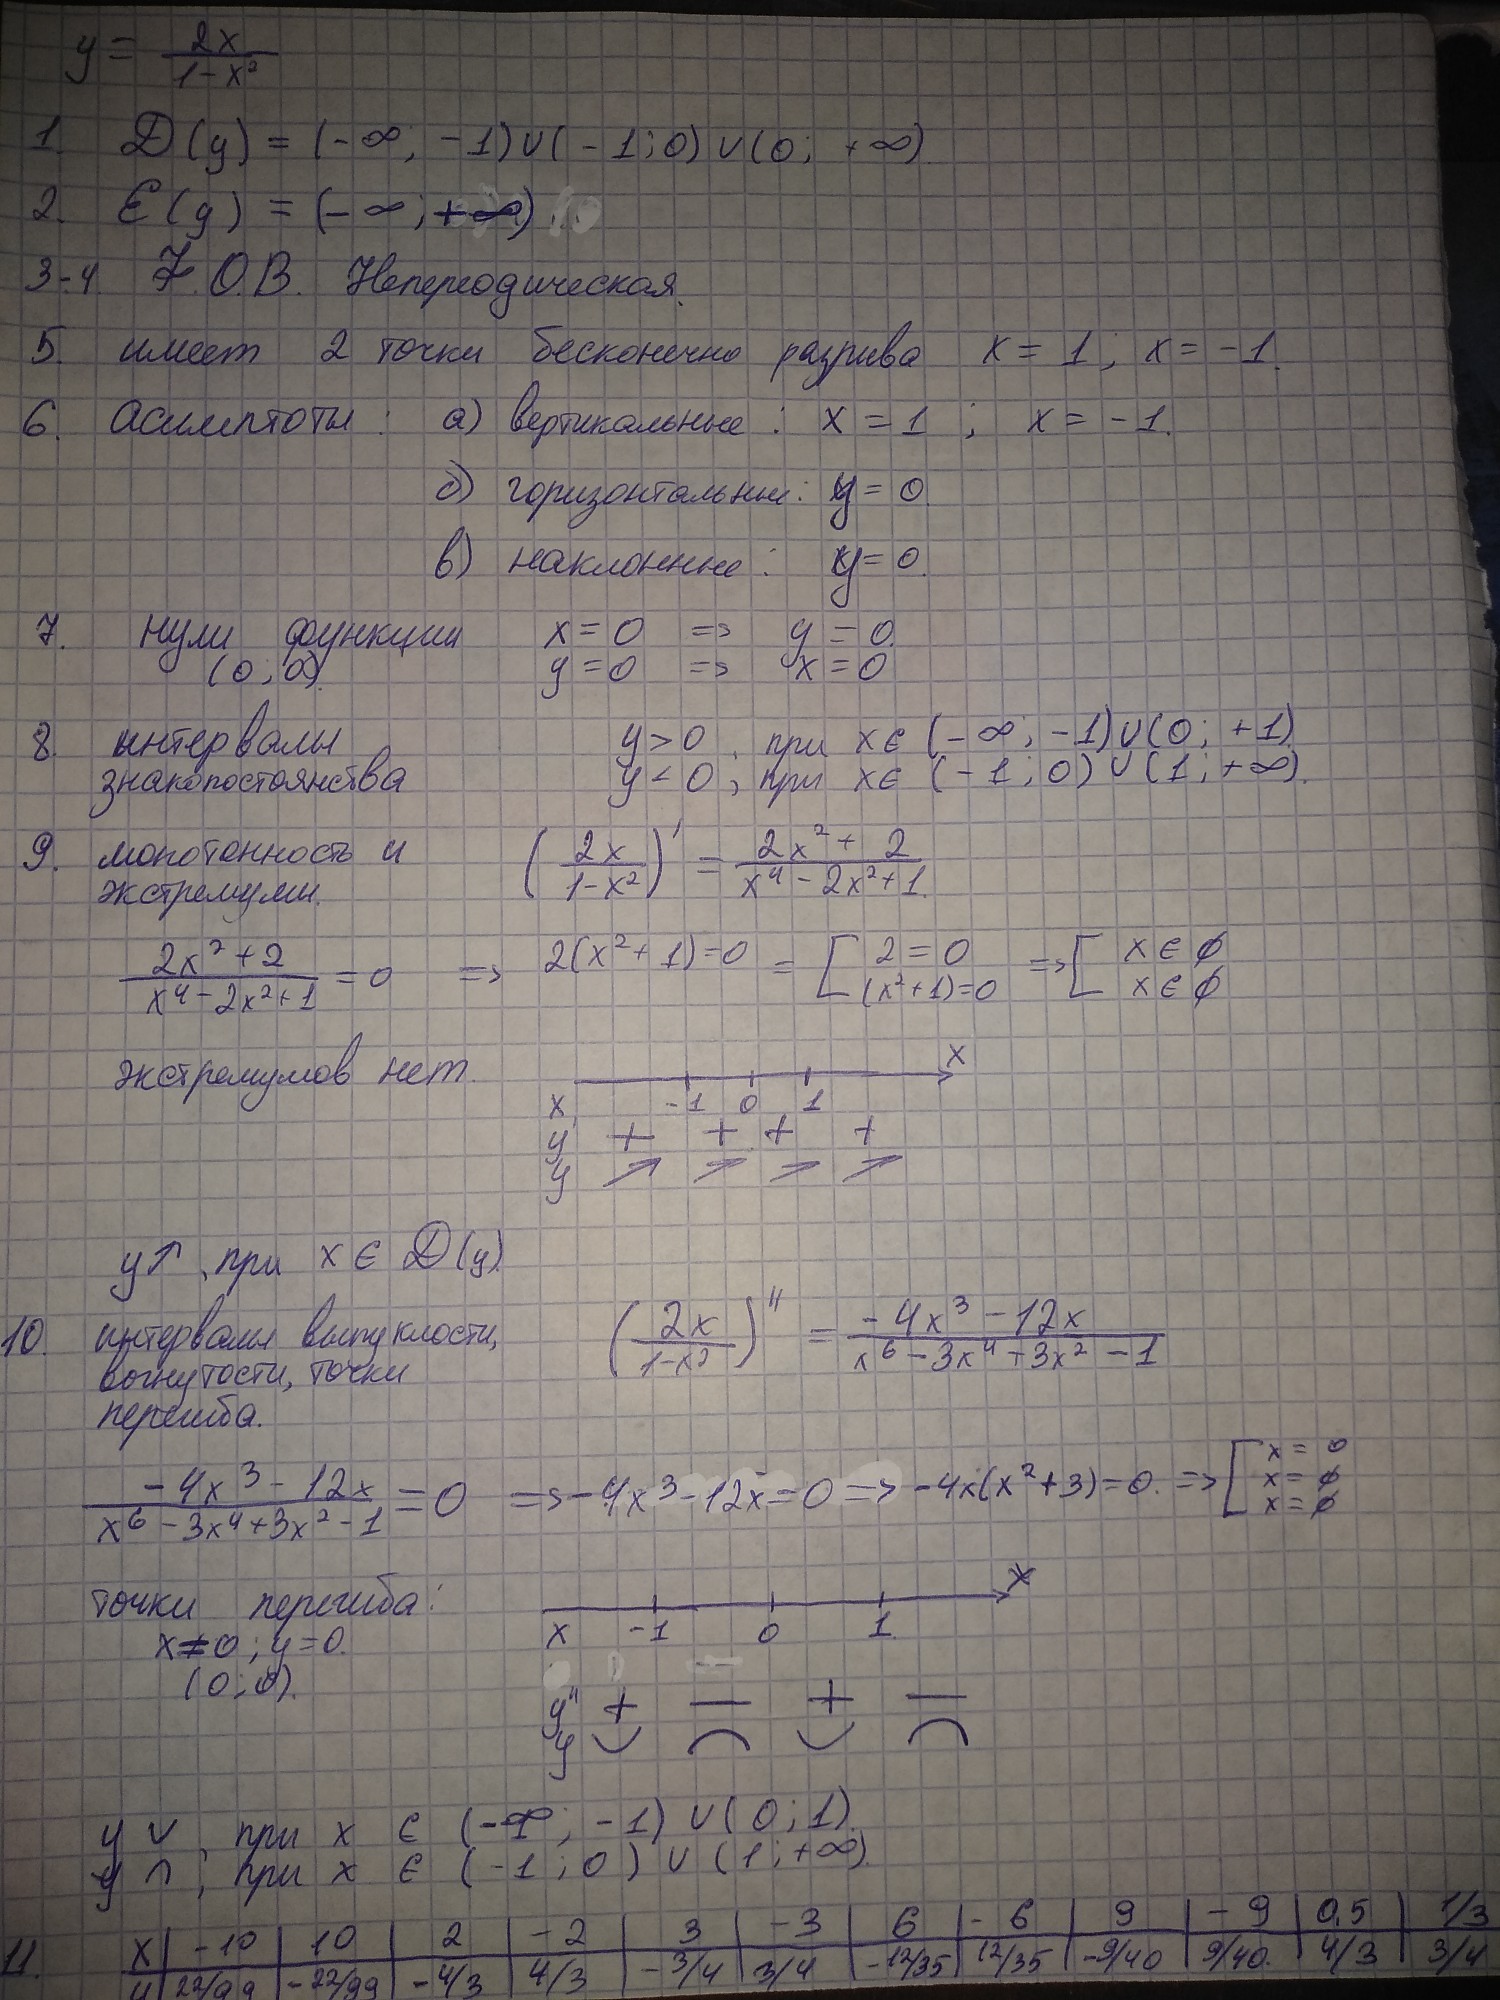 y = 2x / 1-x²
1. D(y) = (-∞; -1)∪(-1;0)∪(0; +∞)
2. E(y) = (-∞; +∞)
3-4 F.O.B. Непереодическая.
5. имеет 2 точки бесконечно разрива x = 1; x = -1.
6. Асимптоты: а) вертикальные: x = 1 ; x = -1.
б) горизонтальные: y = 0
в) наклонные: y = 0.
7. нули функции x = 0 => y = 0.
(0; 0). y = 0 => x = 0
8. интервалы y > 0, при x ∈ (-∞; -1)∪(0; +1)
знакопостоянства y < 0, при x ∈ (-1; 0)∪(1; +∞).
9. монотонность и (2x / 1-x²)' = 2x² + 2 / x⁴ - 2x² + 1.
экстремумы.
2x² + 2 / x⁴ - 2x² + 1 = 0 => 2(x² + 1) = 0 = [ 2 = 0 => [ x ∈ ∅
(x² + 1) = 0 x ∈ ∅
экстремумов нет. x
x -1 0 1
y' + + + +
y ↗ ↗ ↗ ↗
y↑, при x ∈ D(y)
10. интервалы выпуклости, (2x / 1-x²)'' = -4x³ - 12x / x⁶ - 3x⁴ + 3x² - 1
вогнутости, точки
перегиба.
-4x³ - 12x / x⁶ - 3x⁴ + 3x² - 1 = 0 => -4x³ - 12x = 0 => -4x(x² + 3) = 0. => [ x = 0
x = ∅
x = ∅
точки перегиба: x
x = 0; y = 0. x -1 0 1
(0; 0).
y'' + — + —
y ∪ ∩ ∪ ∩
y ∪, при x ∈ (-∞; -1) ∪ (0; 1).
y ∩, при x ∈ (-1; 0) ∪ (1; +∞).
11. x -10 10 2 -2 3 -3 6 -6 9 -9 0,5 1/3
y 22/99 -22/99 -4/3 4/3 -3/4 3/4 -12/35 12/35 -9/40 9/40. 4/3 3/4